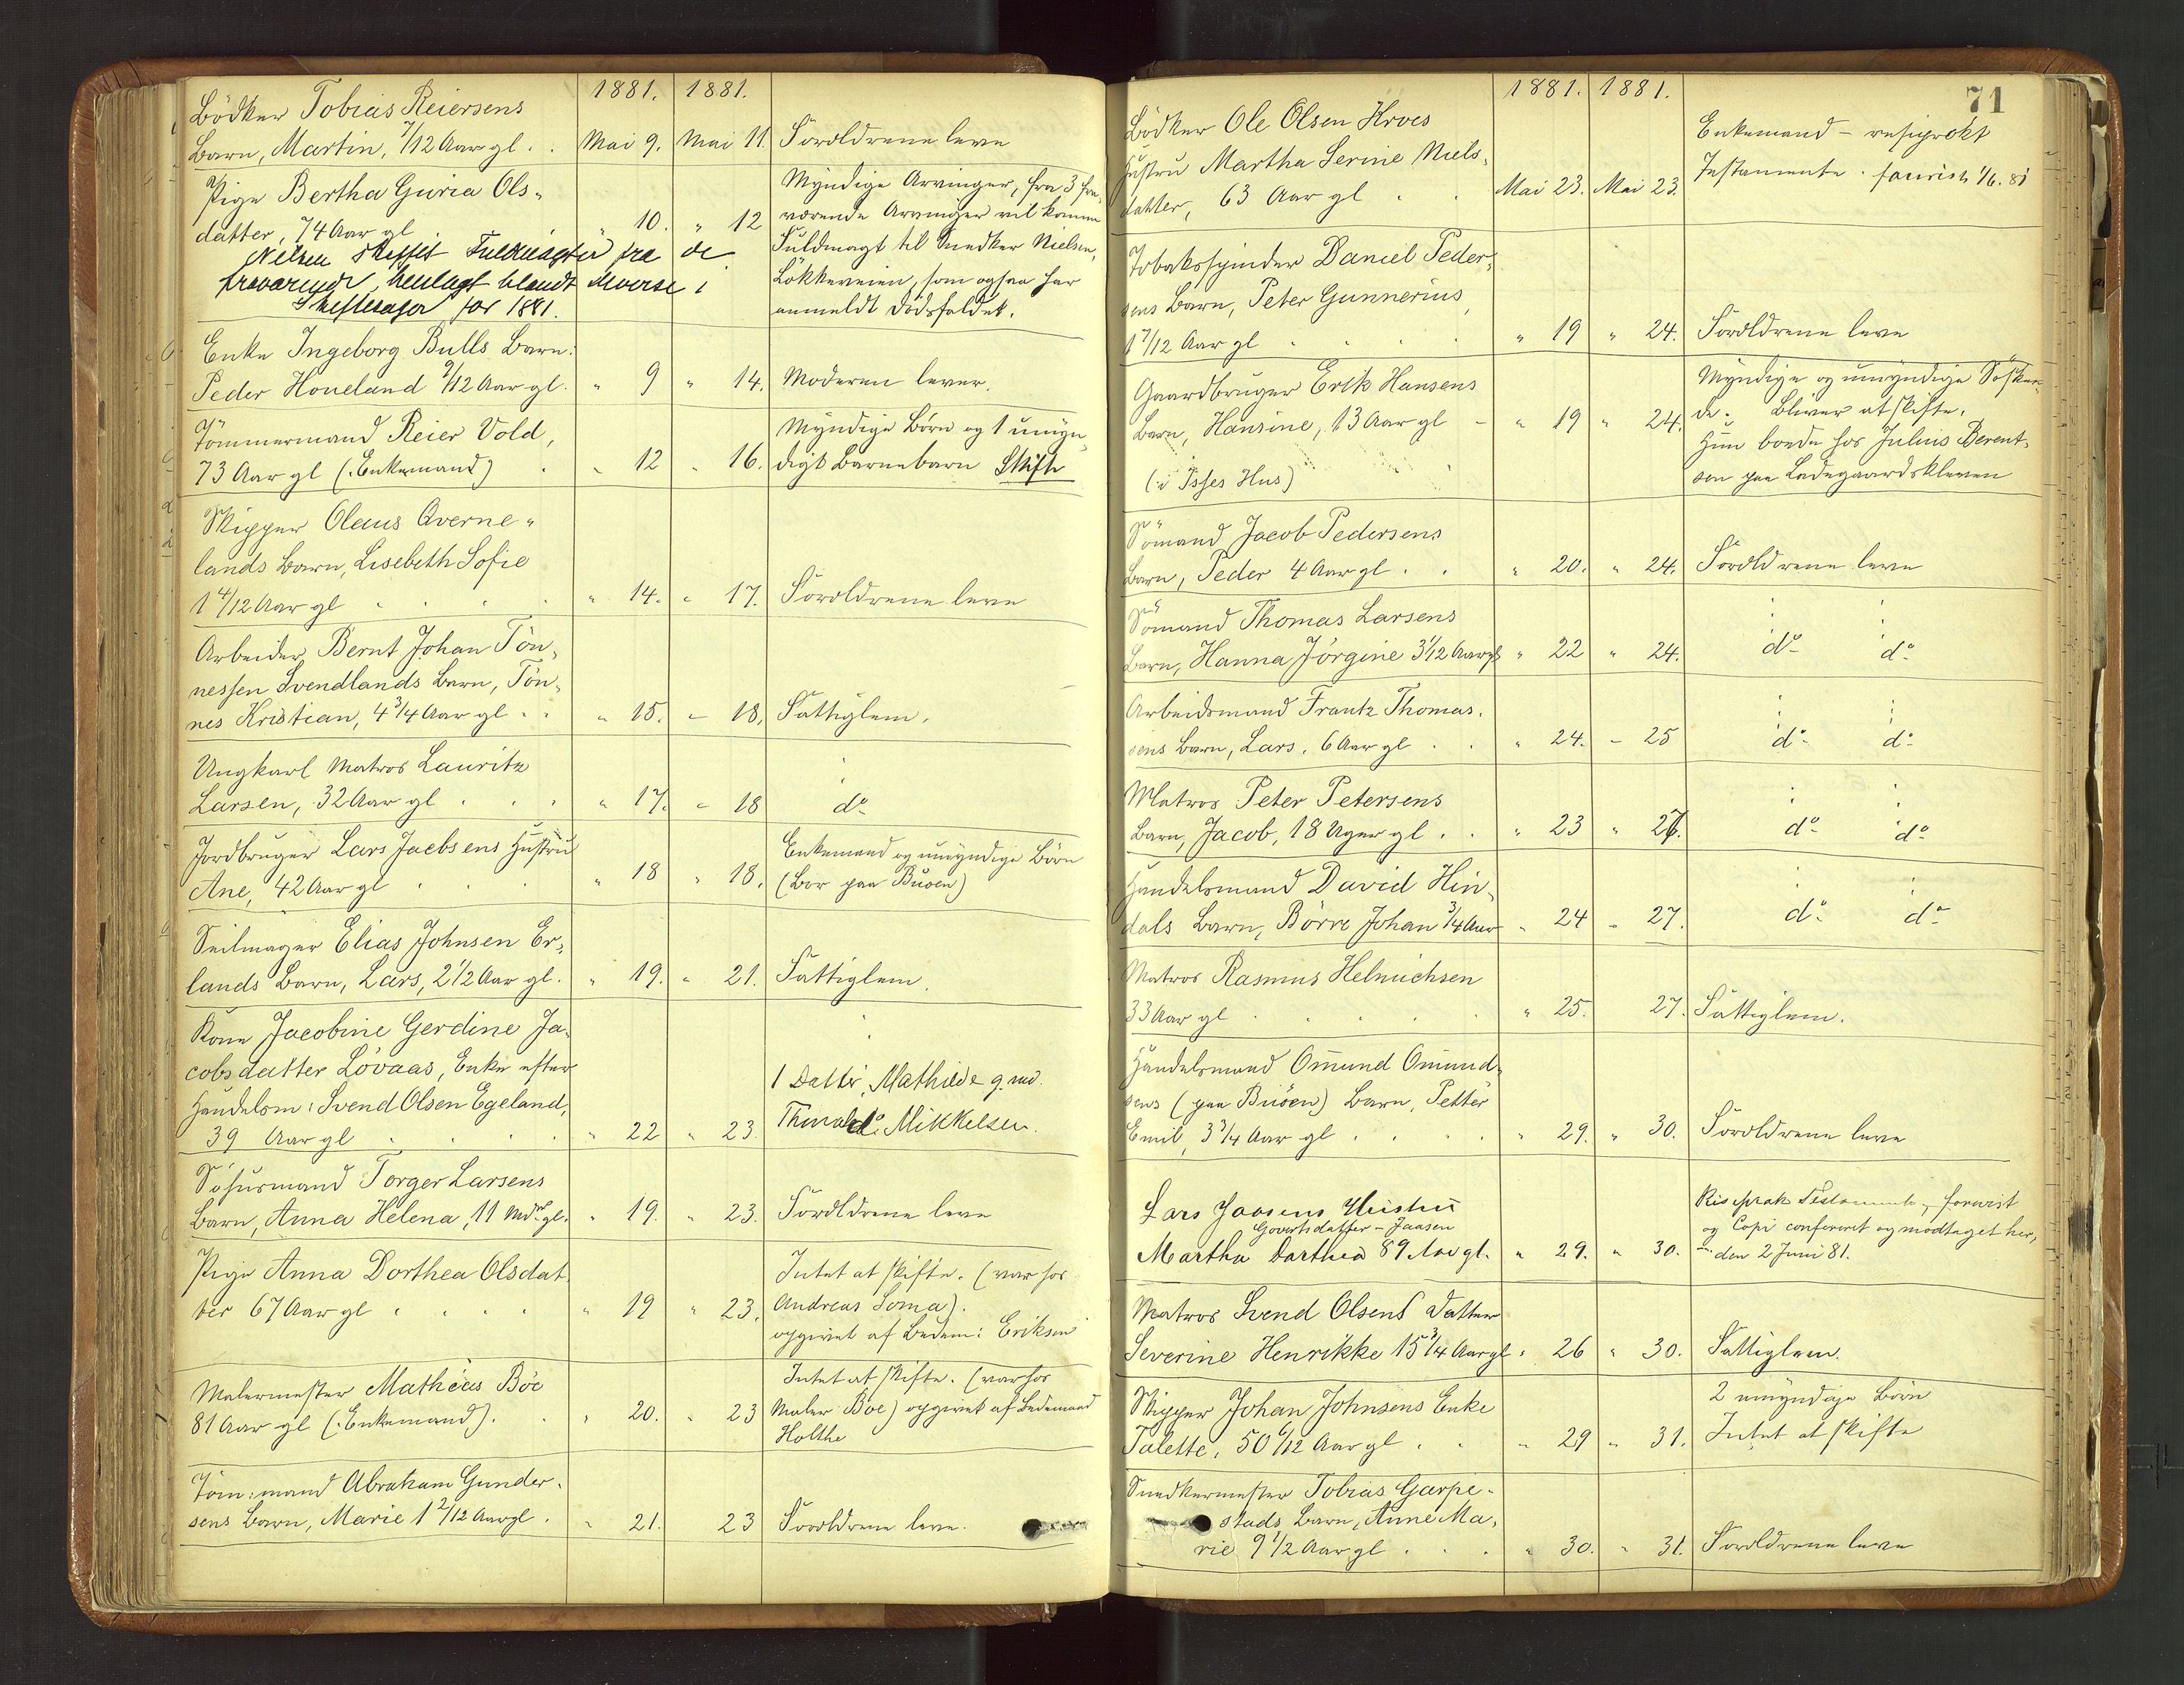 1881. 1881.
Bödker Tobias Reiersens
Barn, Martin, 7/12 Aar gl. . Mai 9. Mai 11. Forældrene leve
Pige Bertha Guria Ols-
datter, 74 Aar gl " 10. " 12
Myndige Arvinger, fra 3 fra-
værende Arvinger vil komme
Fuldmagt til Snedker Nielsen,
Løkkeveien, som ogsaa har
anmeldt Dødsfaldet.
Nielsen Fuldmagter fra de
fraværende, henlagt blandt diverse i
Skiftesager for 1881.
Enke Ingeborg Bulls Barn:
Peder Honeland 9/12 Aar gl. " 9 " 14. Moderen lever.
Tömmermand Reier Vold,
73 Aar gl (Enkemand) . " 12 " 16.
Myndige Børn og 1 umyn-
digt Barnebarn Skifte
Skipper Olaus Qverne-
lands Barn, Lisebeth Sofie
1 4/12 Aar gl " 14. " 17. Forældrene leve
Arbeider Bernt Johan Tön-
nessen Svendlands Barn, Tön-
nes Kristian, 4 3/4 Aar gl . . " 15. " 18. Fattiglem.
Ungkarl Matros Lauritz
Larsen, 32 Aar gl . . . " 17. " 18 do
Jordbruger Lars Jacobsens Hustru
Ane, 42 Aar gl . . . " 18 " 18.
Enkemand og umyndige Børn
(Bor paa Buøen)
Seilmager Elias Johnsen Er-
lands Barn, Lars, 2 1/2 Aar gl. " 19. " 21. Fattiglem.
Kone Jacobine Gerdine Ja-
cobsdatter Lövaas, Enke efter
Handelsm: Svend Olsen Egeland,
39 Aar gl . . . . " 22 " 23.
1 Datter, Mathilde g. med
Mikkelsen.
Torger Larsens
Barn, Anna Helena, 11 Mdr gl. " 19. " 23. Forældrene leve
Pige Anna Dorthea Olsdat
ter 67 Aar gl . . . . " 19 " 23.
Intet at skifte. (var hos
Andreas Soma).
opgivet af Bedem: Eriksen
Malermester Mathias Böe
81 Aar gl (Enkemand). . " 20. " 23
Intet at skifte. (var hos
Maler Böe) opgivet af Bedemand
Holthe
Töm:mand Abraham Gunder-
sens Barn, Marie 1 2/12 Aar gl . " 21. 23 Forældrene leve.
71
1881. 1881.
Bödker Ole Olsen Hroes
Hustru Martha Serine Niels-
datter, 63 Aar gl . . Mai 23. Mai 23.
Enkemand – resiprokt
Testamente . 1/6. 81
Tobaksspinder Daniel Peder-
sens Barn, Peter Gunnerius,
1 7/12 Aar gl . . . . " 19 " 24. Forældrene leve
Gaardbruger Erik Hansens
Barn, Hansine, 13 Aar gl – " 19 " 24.
(i Hus)
Myndige og umyndige Søsken-
de. Bliver at skifte.
Hun boede hos Julius Berent-
sen paa Ladegaardskleven
Sömand Jacob Pedersens
Barn, Peder 4 Aar gl . . " 20. " 24. Forældrene leve
Sömand Thomas Larsens
Barn, Hanna Jörgine 3 1/12 Aar gl " 22 " 24. do do
Arbeidsmand Frantz Thomas-
sens Barn, Lars. 6 Aar gl . . " 24. " 25 do do
Matros Peter Petersens
Barn, Jacob, 18 Uger gl . . " 23 " 27. do do
Handelsmand David Hin-
dals Barn, Börre Johan 3/4 Aar " 24 " 27. do do
Matros Rasmus Helmichsen
33 Aar gl . . . . . " 25. 27. Fattiglem.
Handelsmand Omund Omund-
sens (paa Buöen) Barn, Petter
Emil, 3 3/4 Aar gl . . . . " 29. " 30. Forældrene leve
Lars Jaasens Hustru
Govertsdatter – Jaasen
Martha Dorthea 89 Aar gl. " 29. " 30.
Testamente, forevist
og Copi confereret og modtaget her,
den 2 Juni 81.
Matros Svend Olsens Datter
Severine Henrikke 15 3/4 Aar gl " 26 " 30. Fattiglem.
Skipper Johan Johnsens Enke
Talette, 50 6/12 Aar gl . . " 29 " 31.
2 umyndige Børn
Intet at skifte
Snedkermester Tobias Garpe-
stads Barn, Anne Ma-
rie 9 1/2 Aar gl . . . " 30. " 31. Forældrene leve